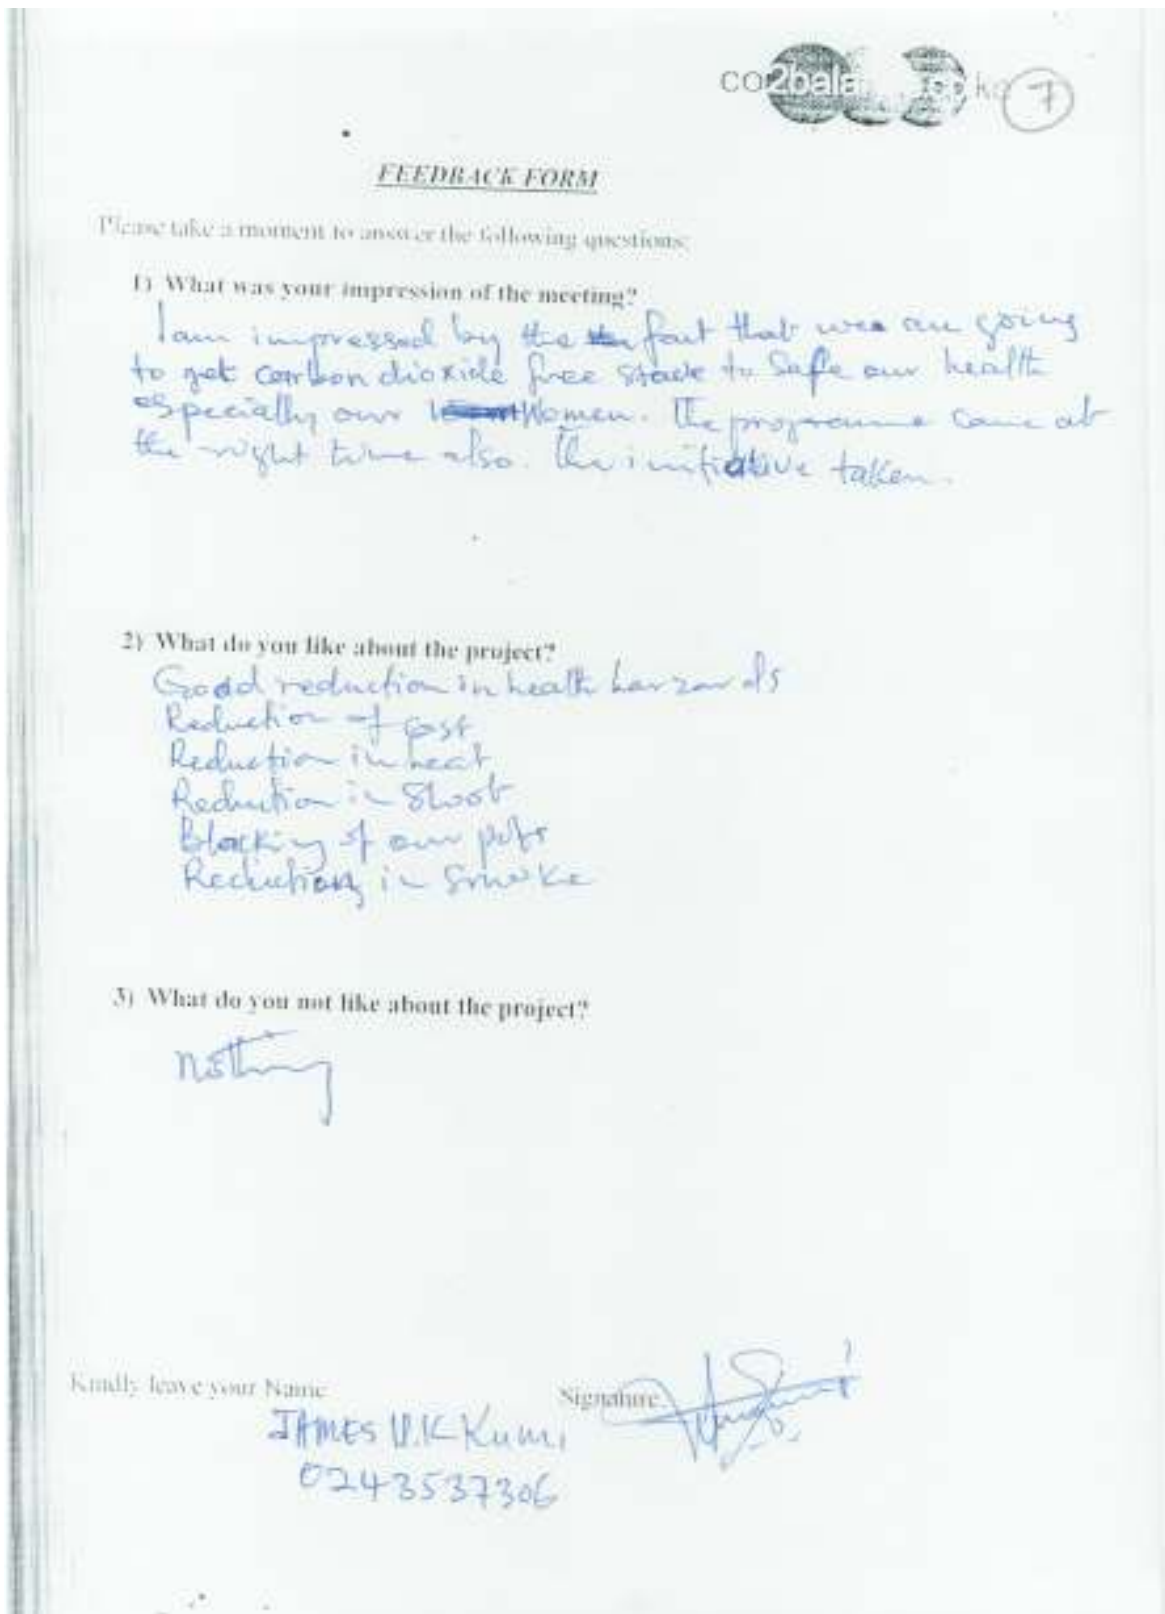 co2bala
7
FEEDBACK FORM
Please take a moment to answer the following questions:
1) What was your impression of the meeting?
I am impressed by the fact that we are going
to get carbon dioxide free stove to Safe our health
especially our Women. The programme came at
the right time also. The initiative taken.
2) What do you like about the project?
Good reduction in health harzards
Reduction of cost
Reduction in heat
Reduction in Shoot
Blacking of our pots
Reduction in Smoke
3) What do you not like about the project?
Nothing
Kindly leave your Name
Signature
JAMES V.K Kumi
0243537306